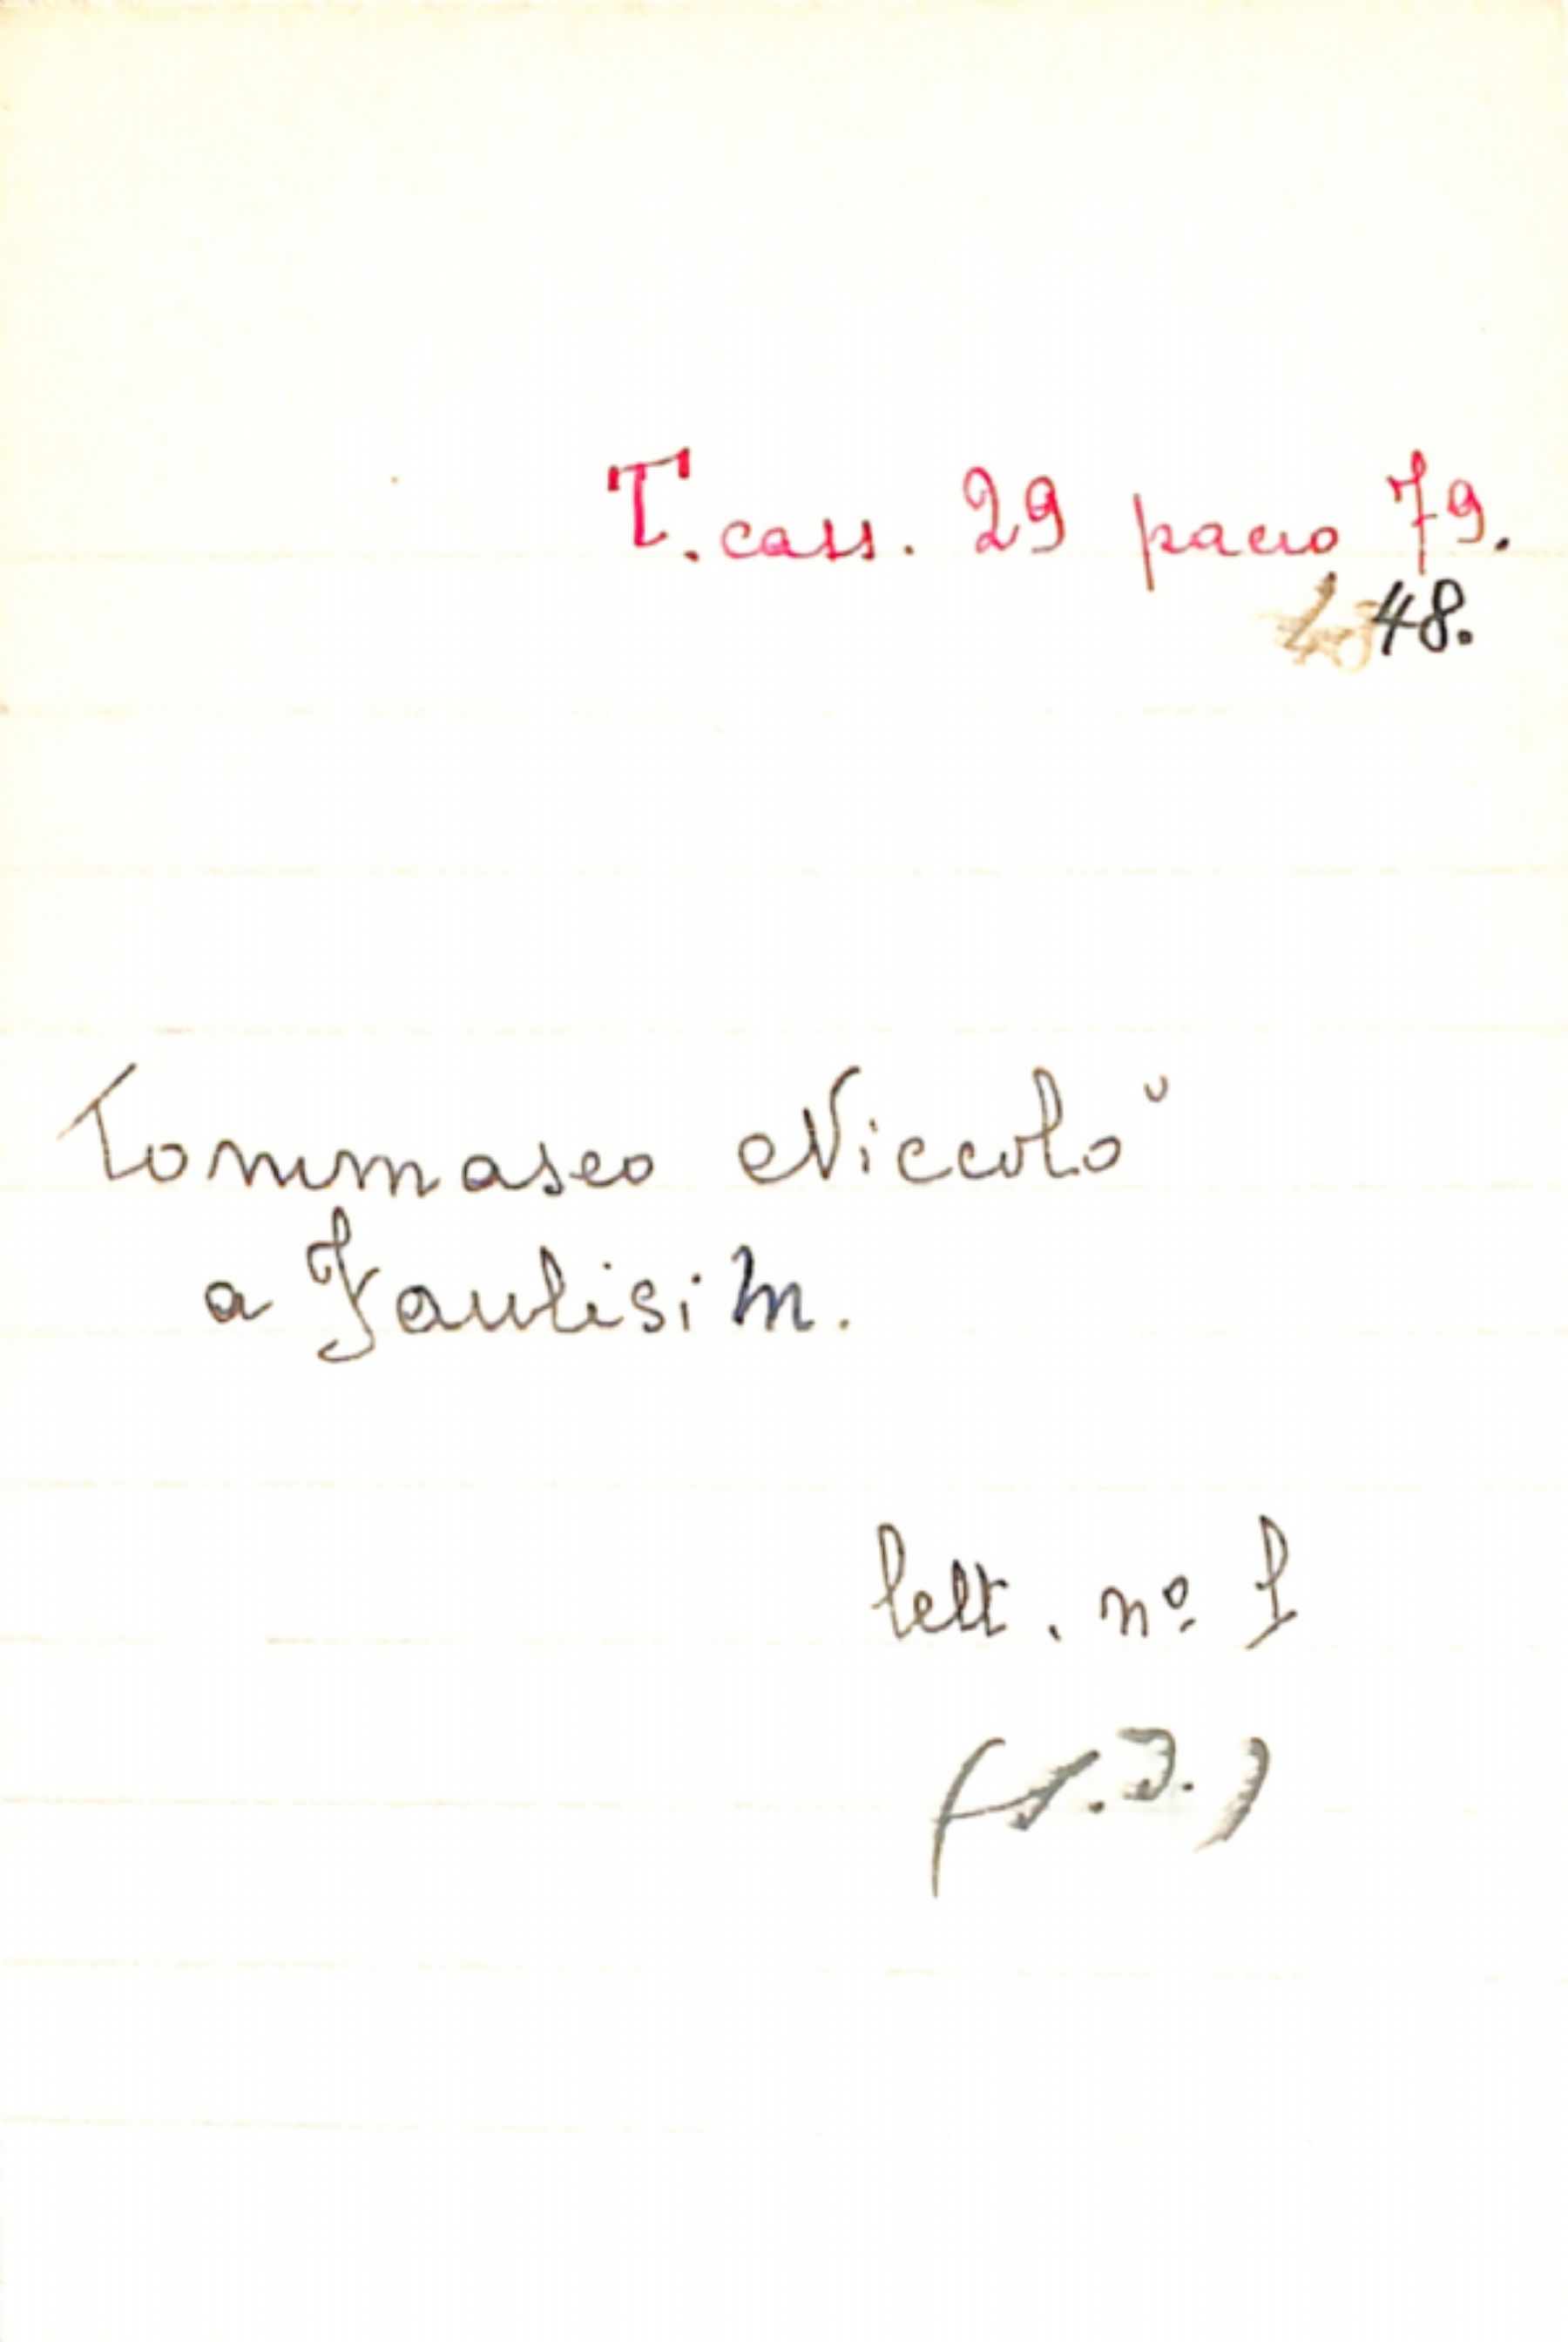 T. cass. 29 pacco 79.
48.
Tommaseo Niccolò
a Faulisi M.
lett. nº 1
(s.d.)